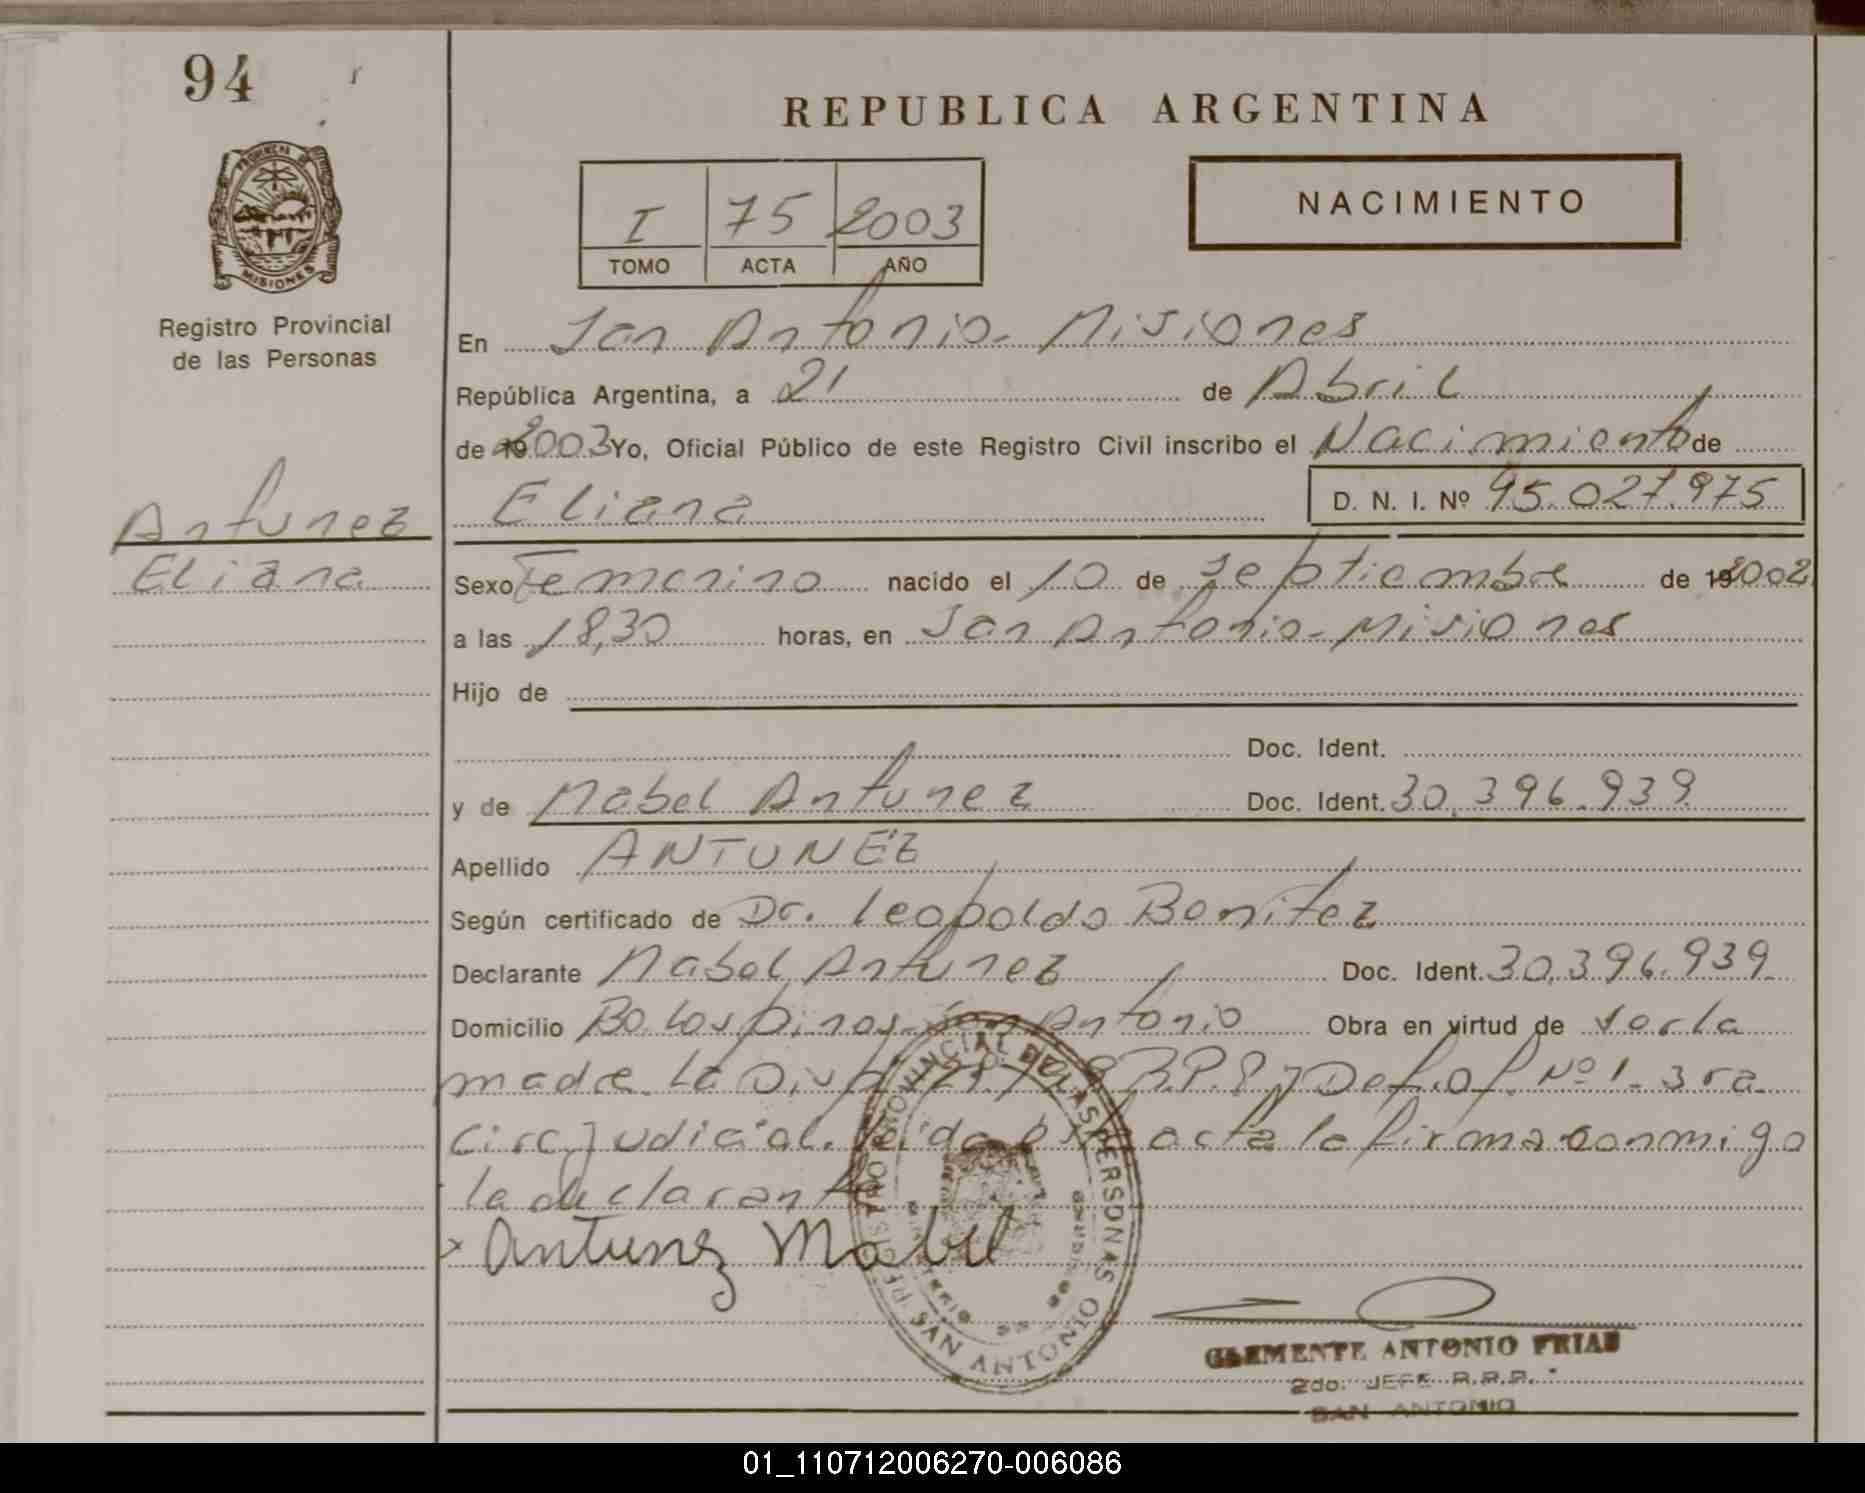 94
REPUBLICA ARGENTINA
PROVINCIA DE
MISIONES
Registro Provincial
de las Personas
I 75 2003
TOMO ACTA AÑO
NACIMIENTO
En San Antonio - Misiones
República Argentina, a 21 de Abril
de 2003 Yo, Oficial Público de este Registro Civil inscribo el Nacimiento de
Antunez
Eliana
Eliana D. N. I. Nº 45.027.975
Sexo Femenino nacido el 10 de Septiembre de 2002
a las 18,30 horas, en San Antonio - Misiones
Hijo de
Doc. Ident.
y de Mabel Antunez Doc. Ident. 30.396.939
Apellido ANTUNEZ
Según certificado de Dr. Leopoldo Benitez
Declarante Mabel Antunez Doc. Ident. 30.396.939
Domicilio Bo. Los pinos - San Antonio Obra en virtud de ser la
madre. La R.P.P. y Def. of. Nº 1 - 3ra
Circ Judicial. Leida esta acta la firma conmigo
la declarante
x Antunez Mabel
REGISTRO PROVINCIAL DE LAS PERSONAS
SAN ANTONIO
CLEMENTE ANTONIO FRIAS
2do. JEFE R.P.P.
SAN ANTONIO
01_110712006270-006086